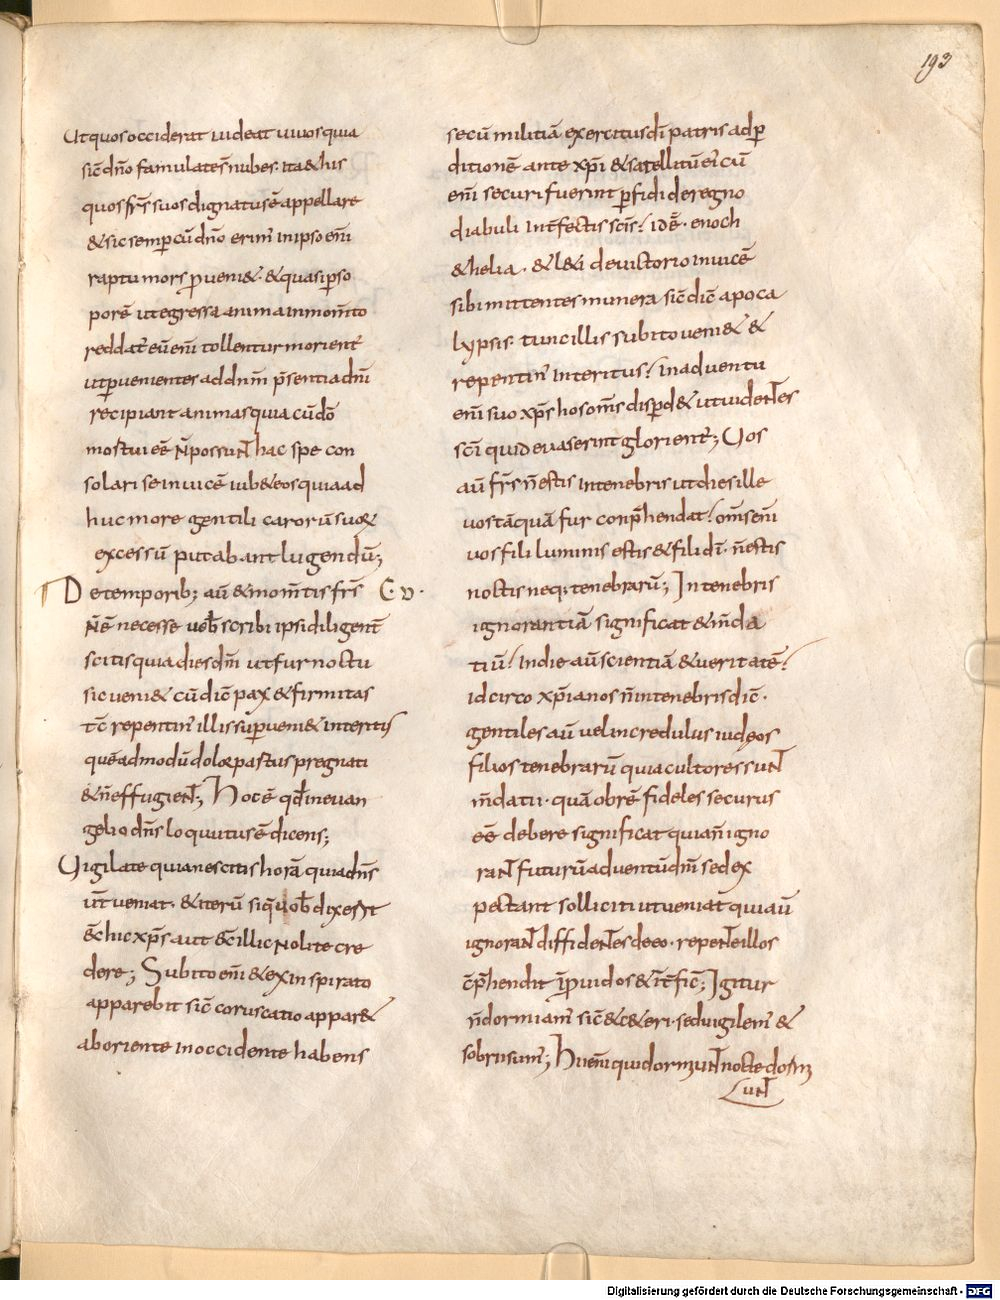 193
Ut quos occiderat uideat uiuos quia
sic̄ dn̄o famulatēs nubes· ita & his
quos fr̄s suos dignatus ē appellare
& sic semꝑ cū dn̄o erim̄ in ipso eni̅
raptu mors ꝓueni&· & quasi ꝑ so
porē ut egressa anima in mom̄to
reddat̄ eu̅ eni̅ tollentur morient̄
ut ꝑuenientes ad dn̄m p̄sentia dn̄i
recipiant animas quia cū dn̄o
mostui eē n̄ possunt hac spe con
solari se inuicē iub& eos quia ad
huc more gentili carorū suoꝝ
excessū putabant lugendū;
De temporib; aū & mom̄tis fr̄s C· v·
N̄ ē necesse uob̄ scribi ipsi diligent̄
scitis quia dies dn̄i ut fur noctu
sic ueni& cū dic̄ pax & firmitas
tc̄ repentin' illis suꝑueni& interitus
quēadmodū dolor partus pregnati
& n̄ effugient; Hoc ē qd̄ in euan
gelio dn̄s loquutus ē dicens;
Uigilate quia nescitis horā qua dn̄s
ur̄ ueniat· & iterū siq̄ uob̄ dixerit
Ecc̄ hic xp̄s aut ecc̄ illic nolite cre
dere; Subito eni̅ & ex inspirato
apparebit sic̄ coruscatio appar&
ab oriente in occidente habens
secū militiā exercitus dī patris ad ꝑ
ditionē ante xp̄i & satellitū ei' cū
eni̅ securi fuerint ꝑfidi de regno
diabuli int̄fectis scīs! idē· enoch
& helia· & l&i de uictorio inuicē
sibi mittentes munera sic̄ dic̄ apoca
lypsis· tunc illis subito ueni& &
repentin' interitus! in aduentu
eni̅ suo xp̄s hos om̄s disꝑd& ut uidentes
scī quid euaserint glorient̄; Uos
aū fr̄s n̄ estis in tenebris ut dies ille
uos tāquā fur conp̄hendat! om̄s eni̅
uos fili luminis estis & fili dī· n̄ estis
noctis neq; tenebrarū; In tenebris
ignorantiā significat & m̄da
tiū! In die aū scientiā & ueritatē!
idcirco xp̄ianos n̄ in tenebris dic̄·
gentiles aū uel incredulus iudęos
filios tenebrarū quia cultores sunt
m̄datii· quā ob rē fideles securus
eē debere significat quia n̄ igno
rant futurū aduentū dn̄i sed ex
pectant solliciti ut ueniat qui aū
ignorant diffidentes deeo· repente illos
c̄p̄hendit īꝓuidos & int̄fic̄; Igitur
n̄ dormiam' sic̄ & c&eri· sed uigilem' &
sobrii sum'; Hii eni̅ qui dormiunt nocte dorm
iunt
Digitalisierung gefördert durch die Deutsche Forschungsgemeinschaft - DFG